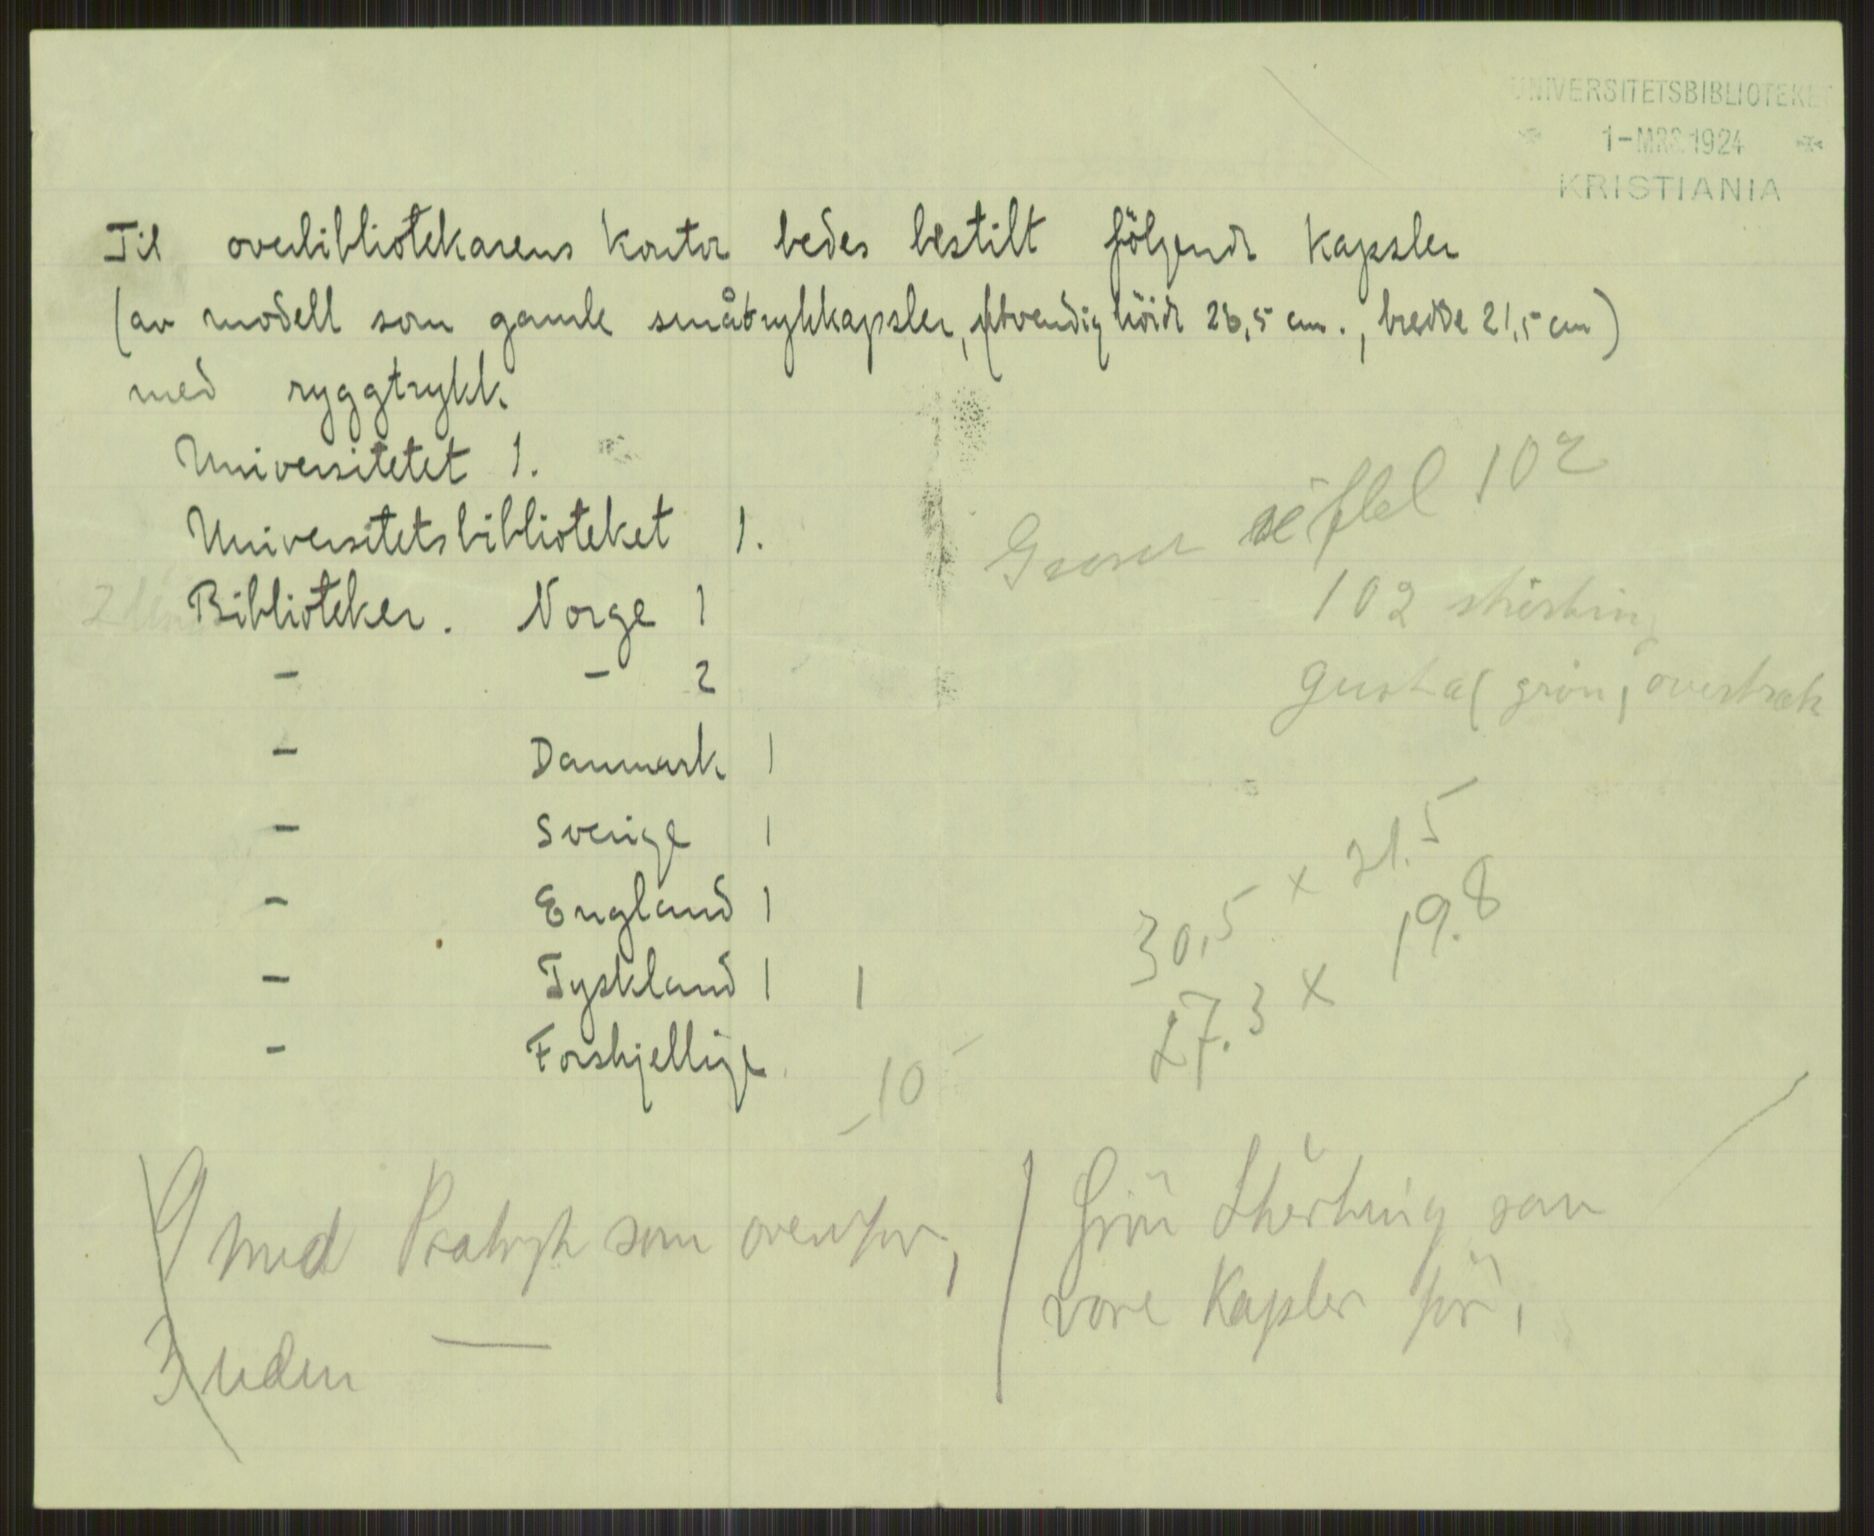 UNIVERSITETSBIBLIOTEKET
1-MRS.1924
KRISTIANIA
Til overbibliotekarens kontor bedes bestilt følgende kapsler
(av modell som gamle småtrykkapsler, utvendig höide 28,5 cm., bredde 21,5 cm)
med ryggtrykk.
Universitetet 1.
Universitetsbiblioteket 1.
Biblioteker. Norge 1
- - 2
- Danmark 1
- Sverige 1
- England 1
- Tyskland 1 1
- Forskjellige.
10
102
102 shirting
Gustaf grön, overtræk
30,5 x 21.5
27.3 x 19.8
9 med som ovenfor,
3 uden —
Grön Shirting som
vore Kapsler för,